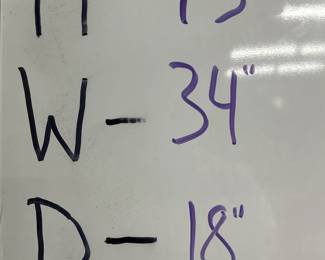 W - 34"
D - 18"